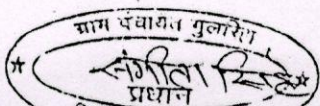 ग्राम पंचायत गुलरिहा
संगीता सिंह
प्रधान